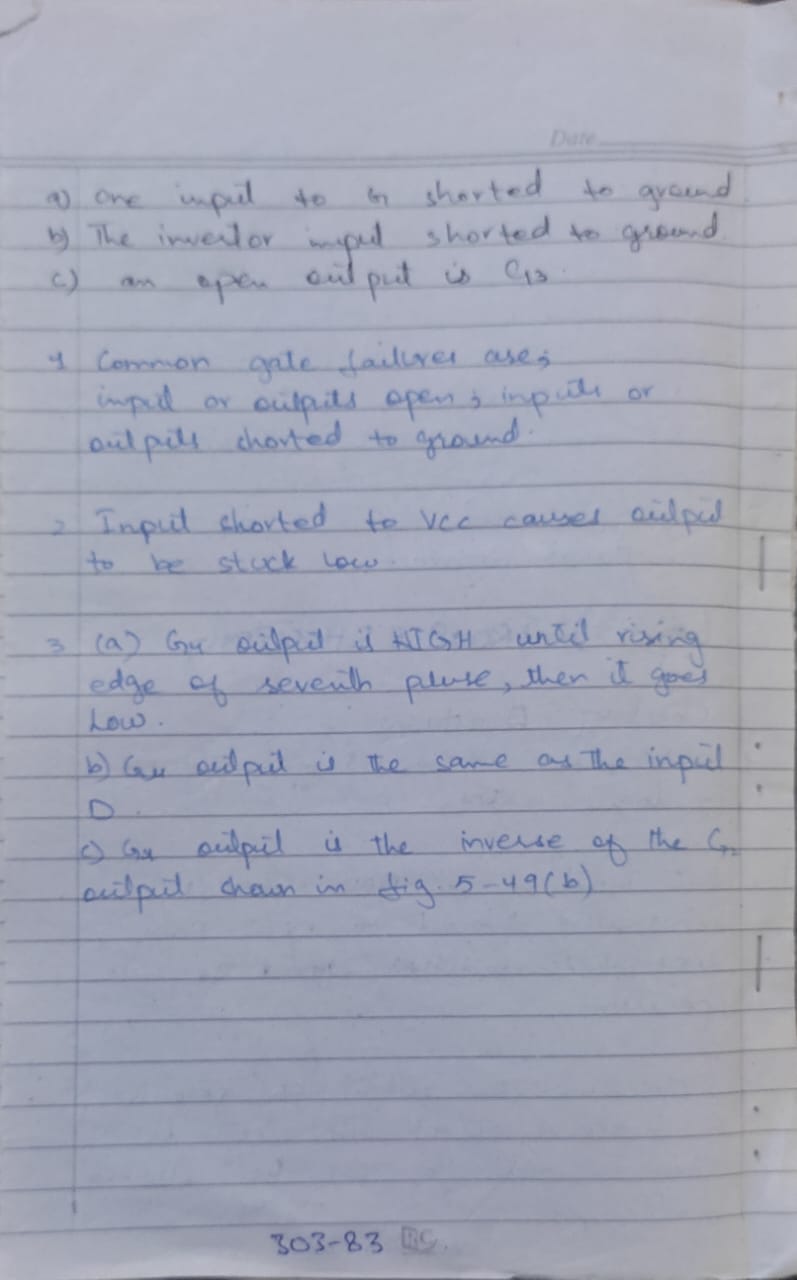 Date
a) one input to G shorted to ground
b) The invertor input shorted to ground.
c) an open output is G3.
1 Common gate failures are;
input or outputs open; inputs or
outputs shorted to ground.
2 Input shorted to Vcc causes output
to be stuck Low.
3 (a) G4 output is HIGH until rising
edge of seventh pluse, then it goes
Low.
b) G4 output is the same as the input
D.
c) G4 output is the inverse of the G2
output shown in fig. 5-49(b)
303-83